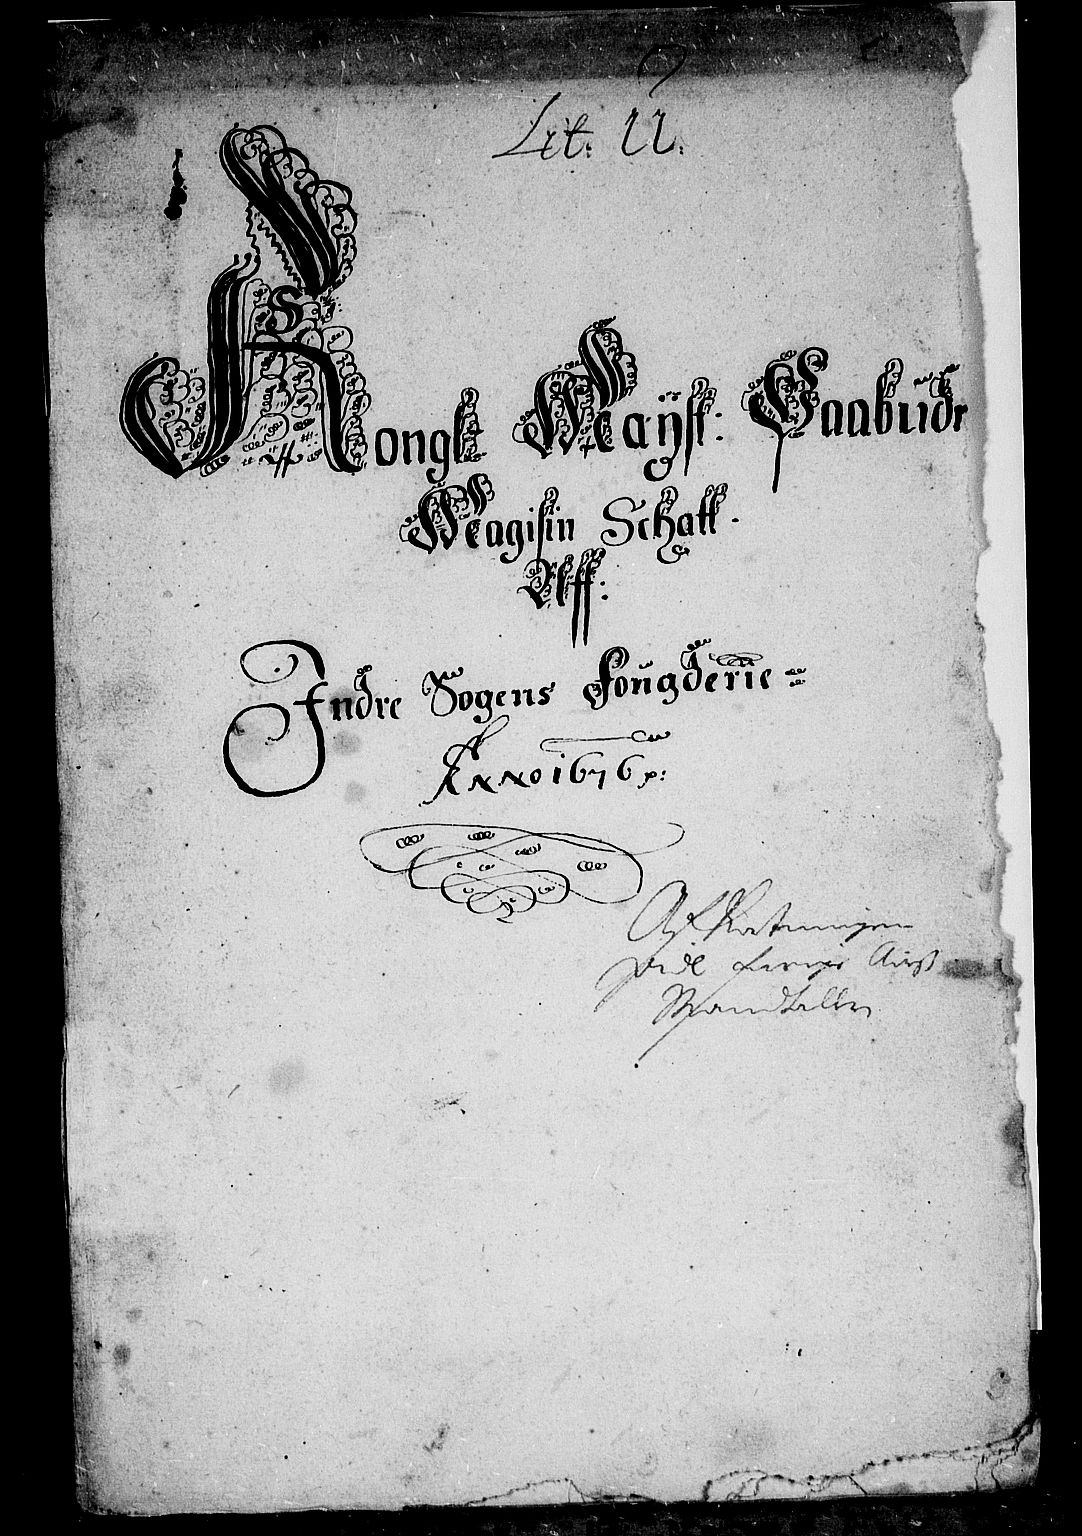 Lit: U.
Kongl Mayst: Paabudr
Magisin Schatt.
Aff:
Indre Sogens fougderie
Anno 1676